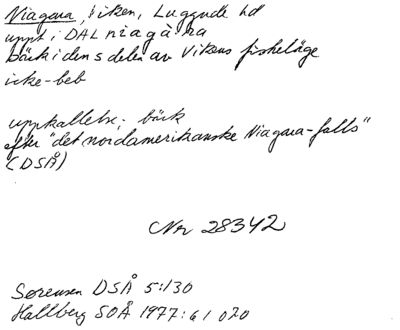 Niagara, Viken, Luggude hd
uppt i DAL niagàra
bäck i den s delen av Vikens fiskeläge
icke-beb
uppkallelse; bäck
efter "det nordamerikanske Niagara-falls"
(DSÅ)
Nr 28342
Sørensen DSÅ 5:130
Hallberg SOÅ 1977:61 070